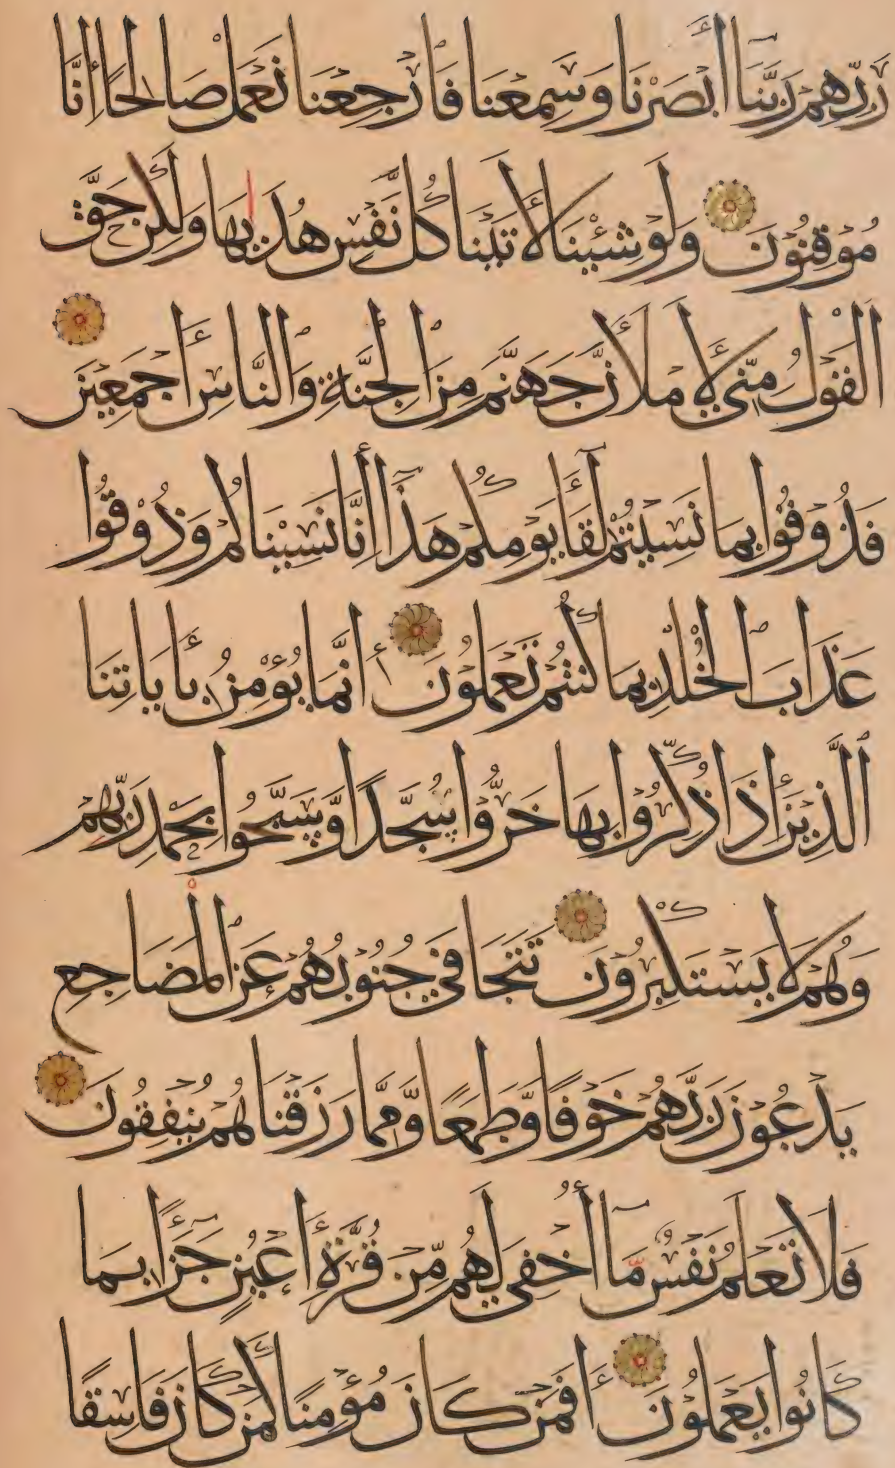 رَبِّهِمْ رَبَّنَا أَبْصَرْنَا وَسَمِعْنَا فَارْجِعْنَا نَعْمَلْ صَالِحًا إِنَّا
مُوقِنُونَ وَلَوْ شِئْنَا لَأَتَيْنَا كُلَّ نَفْسٍ هُدَىٰهَا وَلَٰكِنْ حَقَّ
الْقَوْلُ مِنِّي لَأَمْلَأَنَّ جَهَنَّمَ مِنَ الْجِنَّةِ وَالنَّاسِ أَجْمَعِينَ
فَذُوقُوا بِمَا نَسِيتُمْ لِقَاءَ يَوْمِكُمْ هَٰذَا إِنَّا نَسِينَاكُمْ وَذُوقُوا
عَذَابَ الْخُلْدِ بِمَا كُنْتُمْ تَعْمَلُونَ إِنَّمَا يُؤْمِنُ بِآيَاتِنَا
الَّذِينَ إِذَا ذُكِّرُوا بِهَا خَرُّوا سُجَّدًا وَسَبَّحُوا بِحَمْدِ رَبِّهِمْ
وَهُمْ لَا يَسْتَكْبِرُونَ تَتَجَافَىٰ جُنُوبُهُمْ عَنِ الْمَضَاجِعِ
يَدْعُونَ رَبَّهُمْ خَوْفًا وَطَمَعًا وَمِمَّا رَزَقْنَاهُمْ يُنْفِقُونَ
فَلَا تَعْلَمُ نَفْسٌ مَّا أُخْفِيَ لَهُمْ مِّنْ قُرَّةِ أَعْيُنٍ جَزَاءً بِمَا
كَانُوا يَعْمَلُونَ أَفَمَنْ كَانَ مُؤْمِنًا كَمَنْ كَانَ فَاسِقًا